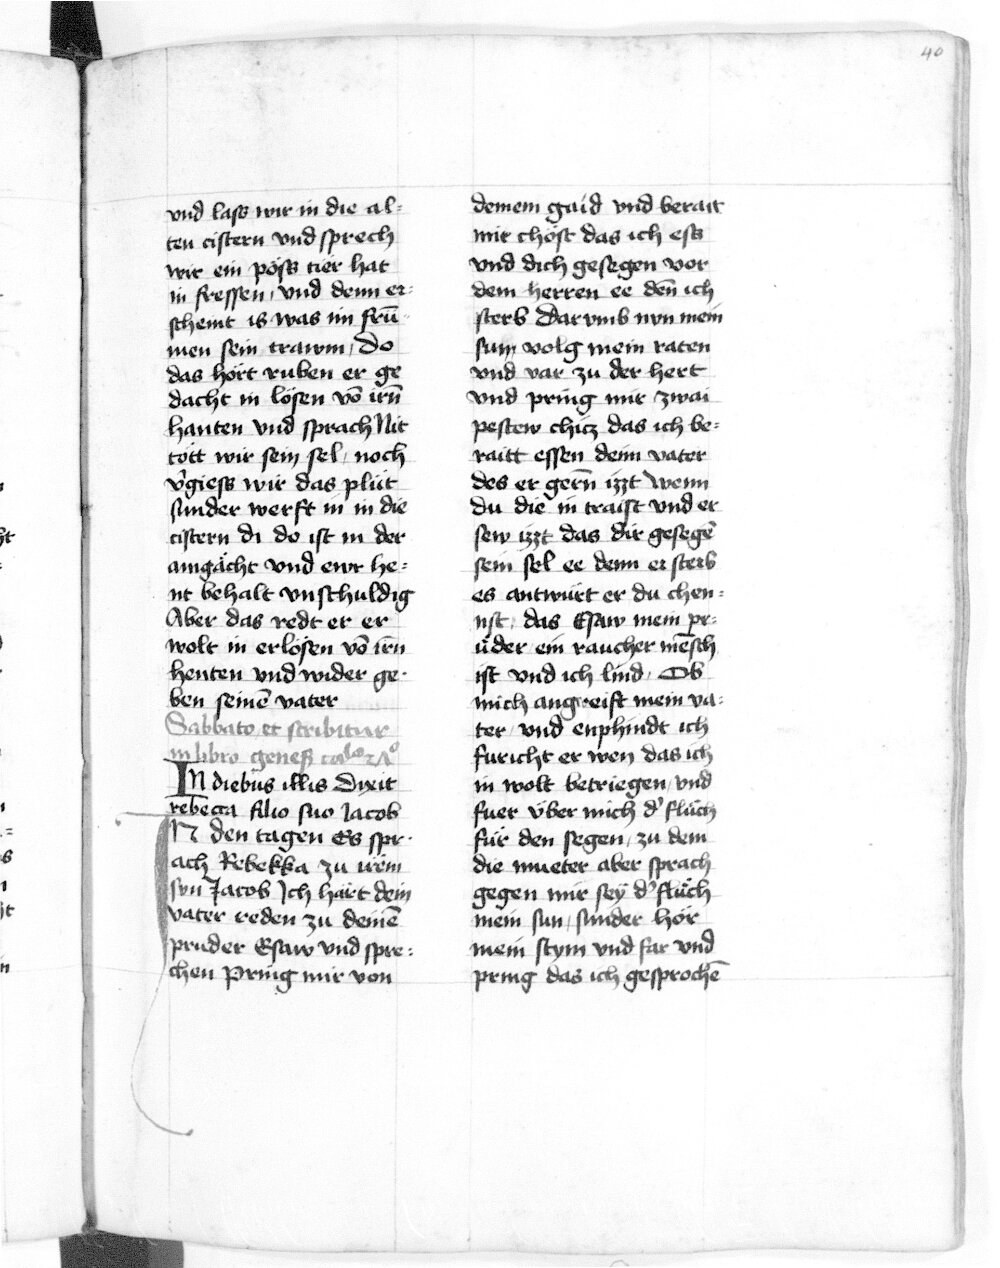 40
vnd lass wir in die al-
ten cistern vnd sprech
wir ein pöss tier hat
in fressen, vnd denn er-
scheint is was im frū-
men sein trawm, Do
das hört ruben er ge
dacht in lösen vō irn̄
hanten vnd sprach Nit
tött wir sein sel, noch
v̉giess wir das plůt
sunder werft in in die
cistern di do ist in der
aingächt vnd ewr he-
nt behalt vnschuldig
Aber das redt er er
wolt in erlösen vō irn
henten vnd wider ge-
ben seinē vater
Sabbato et scribitur
in libro genesis
In diebus illis Dixit
rebecca filio suo Jacob
N den tagen Es spr-
ach Rebekka zu irem
sun Jacob Ich hart dein
vater reden zu deinē
pruder Esaw vnd spre-
chen Pring mir von
deinem gaid vnd berait
mir chost das ich ess
vnd dich gesegen vor
dem herren ee den̄ ich
sterb Darvmb nvn mein
sun volg mein raten
vnd var zu der hert
vnd pring mir zwai
pestew chicz das ich be-
raitt essen deim vater
des er gern̄ izzt Wenn
du die in traist vnd er
sew izzt das dir gesegē
sein sel ee denn er sterb
es antwürt er du chen-
nst, das Esaw mein pr-
ůder ein raucher mēsch
ist vnd ich lind, Ob
mich angreift mein va-
ter vnd enphindt ich
furicht er wen das ich
in wolt betriegen, vnd
fuer über mich d' flůch
für den segen, zu dem
die mueter aber sprach
gegen mir seÿ d' flůch
mein sun, sunder hör
mein stym vnd far vnd
pring das ich gesprochē